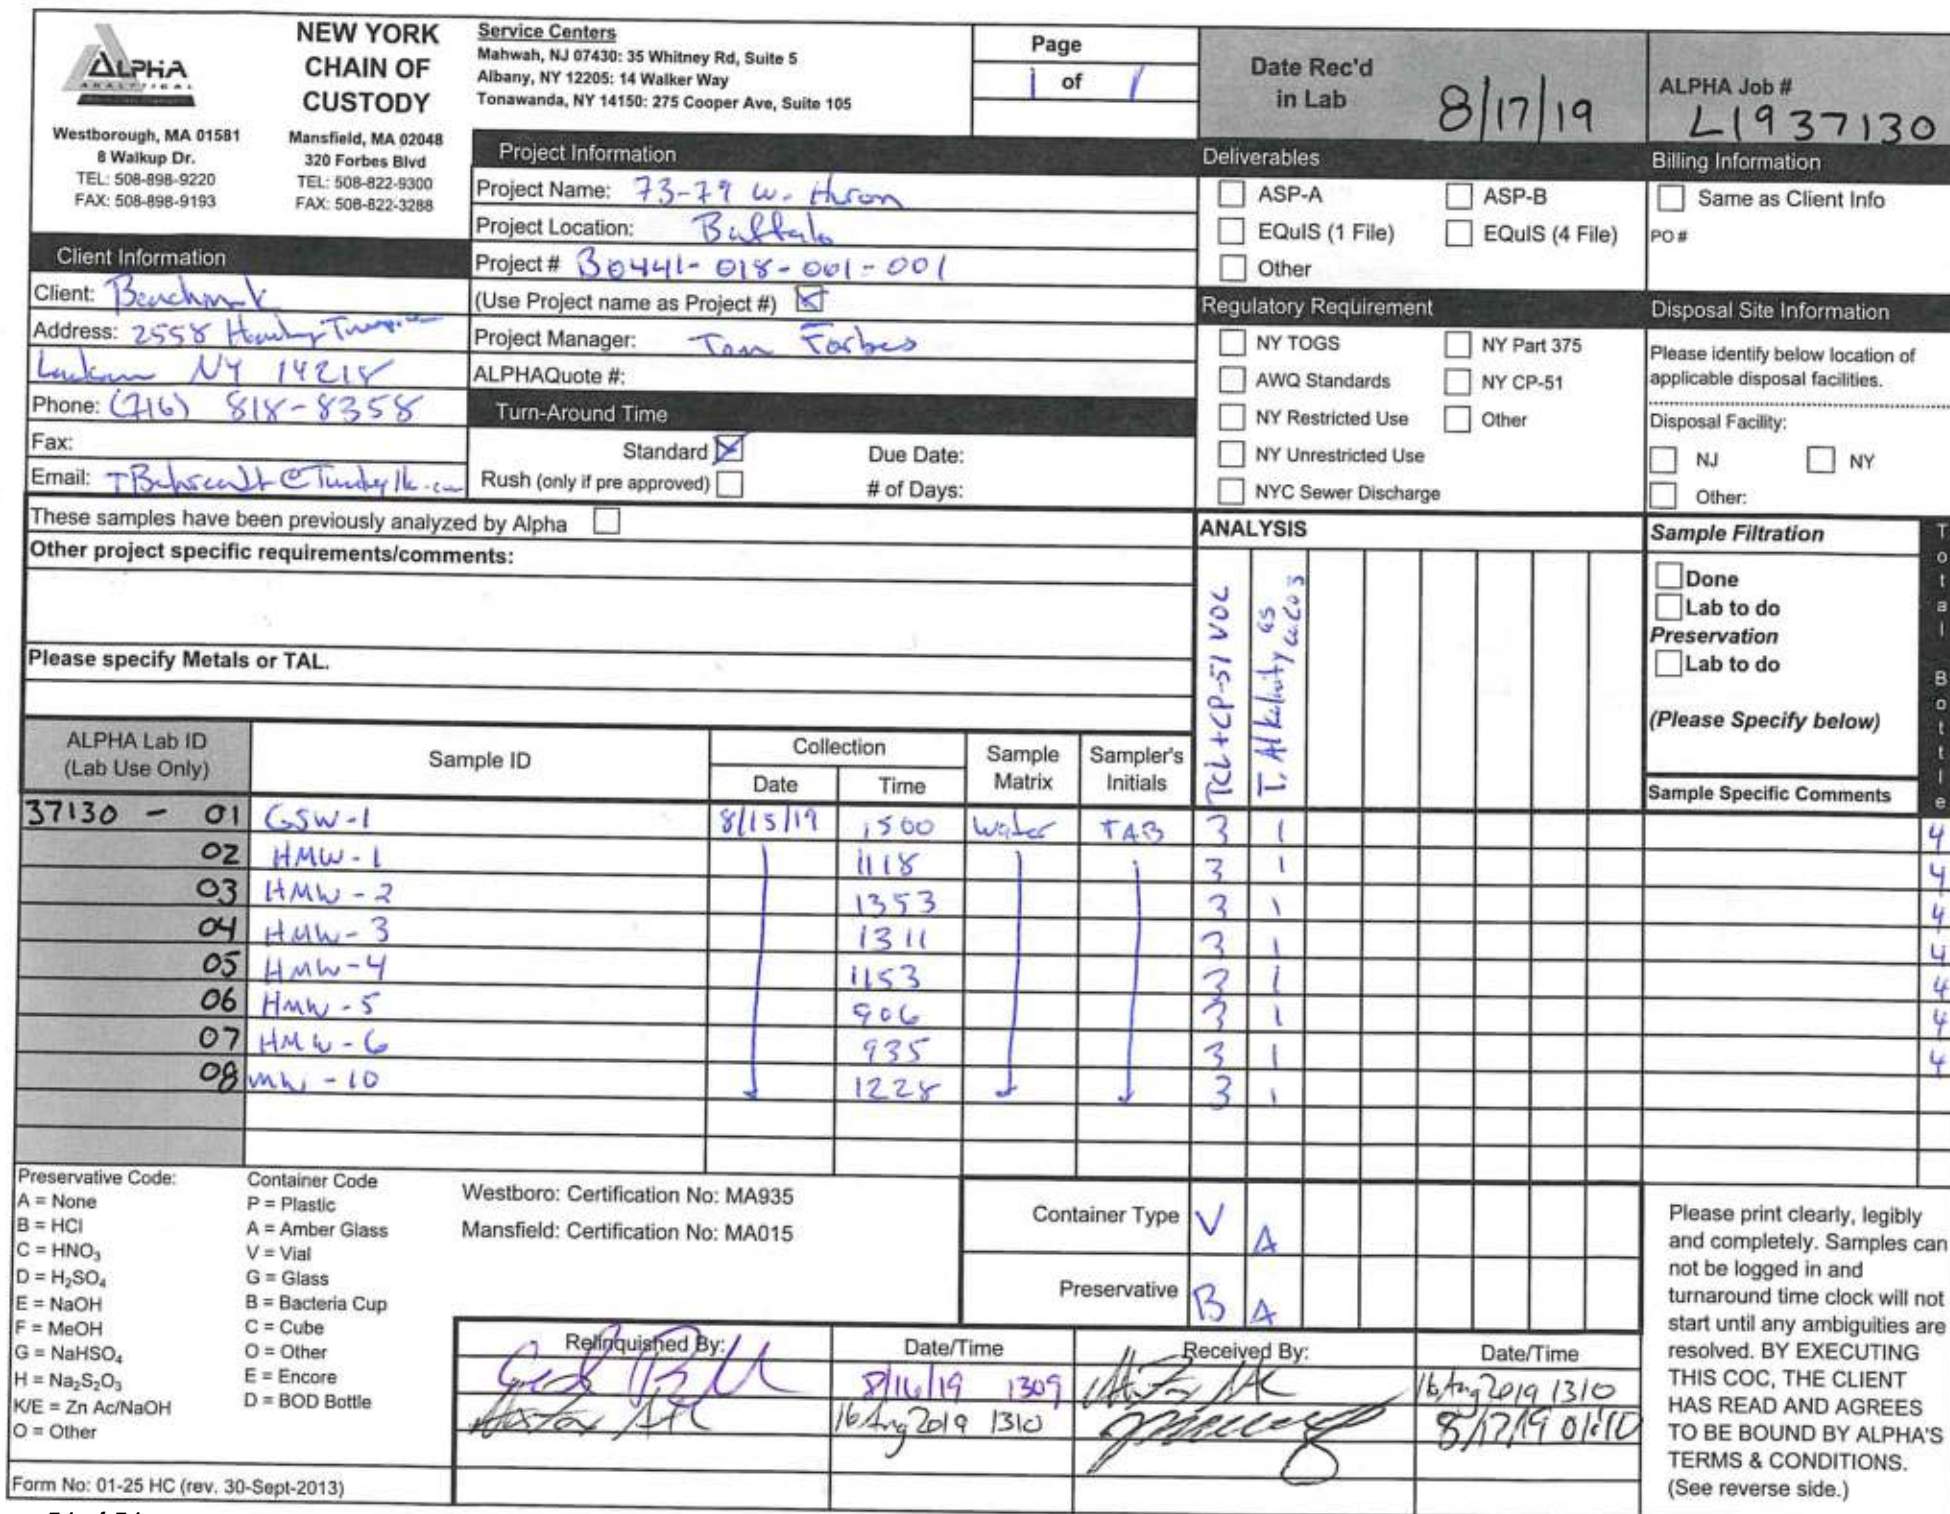 ALPHA
ANALYTICAL
Westborough, MA 01581
8 Walkup Dr.
TEL: 508-898-9220
FAX: 508-898-9193
NEW YORK
CHAIN OF
CUSTODY
Mansfield, MA 02048
320 Forbes Blvd
TEL: 508-822-9300
FAX: 508-822-3288
Service Centers
Mahwah, NJ 07430: 35 Whitney Rd, Suite 5
Albany, NY 12205: 14 Walker Way
Tonawanda, NY 14150: 275 Cooper Ave, Suite 105
Page
1 of 1
Date Rec'd
in Lab 8/17/19
ALPHA Job #
L1937130
Project Information
Project Name: 73-79 W. Huron
Project Location: Buffalo
Project # B0441-018-001-001
(Use Project name as Project #)
Project Manager: Tom Forbes
ALPHAQuote #:
Turn-Around Time
Standard
Due Date:
Rush (only if pre approved)
# of Days:
Client Information
Client: Benchmark
Address: 2558
NY 14218
Phone: (716) 818-8358
Fax:
Email:
Deliverables
ASP-A ASP-B
EQuIS (1 File) EQuIS (4 File)
Other
Regulatory Requirement
NY TOGS NY Part 375
AWQ Standards NY CP-51
NY Restricted Use Other
NY Unrestricted Use
NYC Sewer Discharge
Billing Information
Same as Client Info
PO #
Disposal Site Information
Please identify below location of
applicable disposal facilities.
Disposal Facility:
NJ NY
Other:
These samples have been previously analyzed by Alpha
Other project specific requirements/comments:
Please specify Metals or TAL.
ANALYSIS
TCL+CP-51 VOC
T. Alkalinity as CaCO3
Sample Filtration
Done
Lab to do
Preservation
Lab to do
(Please Specify below)
Sample Specific Comments
Total Bottle
ALPHA Lab ID
(Lab Use Only)
Sample ID
Collection
Date Time
Sample
Matrix
Sampler's
Initials
37130 - 01 GSW-1 8/15/19 1500 Water TAB 3 1 4
02 HMW-1 1118 3 1 4
03 HMW-2 1353 3 1 4
04 HMW-3 1311 3 1 4
05 HMW-4 1153 3 1 4
06 HMW-5 906 3 1 4
07 HMW-6 935 3 1 4
08 MW-10 1228 3 1
Preservative Code:
A = None
B = HCl
C = HNO₃
D = H₂SO₄
E = NaOH
F = MeOH
G = NaHSO₄
H = Na₂S₂O₃
K/E = Zn Ac/NaOH
O = Other
Container Code
P = Plastic
A = Amber Glass
V = Vial
G = Glass
B = Bacteria Cup
C = Cube
O = Other
E = Encore
D = BOD Bottle
Westboro: Certification No: MA935
Mansfield: Certification No: MA015
Container Type V A
Preservative B A
Relinquished By: Date/Time Received By: Date/Time
8/16/19 1309 16 Aug 2019 1310
16 Aug 2019 1310 8/17/19 01:10
Please print clearly, legibly
and completely. Samples can
not be logged in and
turnaround time clock will not
start until any ambiguities are
resolved. BY EXECUTING
THIS COC, THE CLIENT
HAS READ AND AGREES
TO BE BOUND BY ALPHA'S
TERMS & CONDITIONS.
(See reverse side.)
Form No: 01-25 HC (rev. 30-Sept-2013)